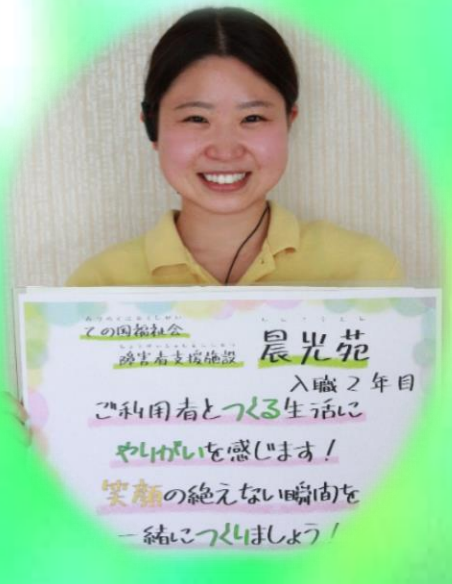 の国福祉会
障害者支援施設 晨光苑
入職2年目
ご利用者とつくる生活に
やりがいを感じます！
笑顔の絶えない瞬間を
一緒につくりましょう！